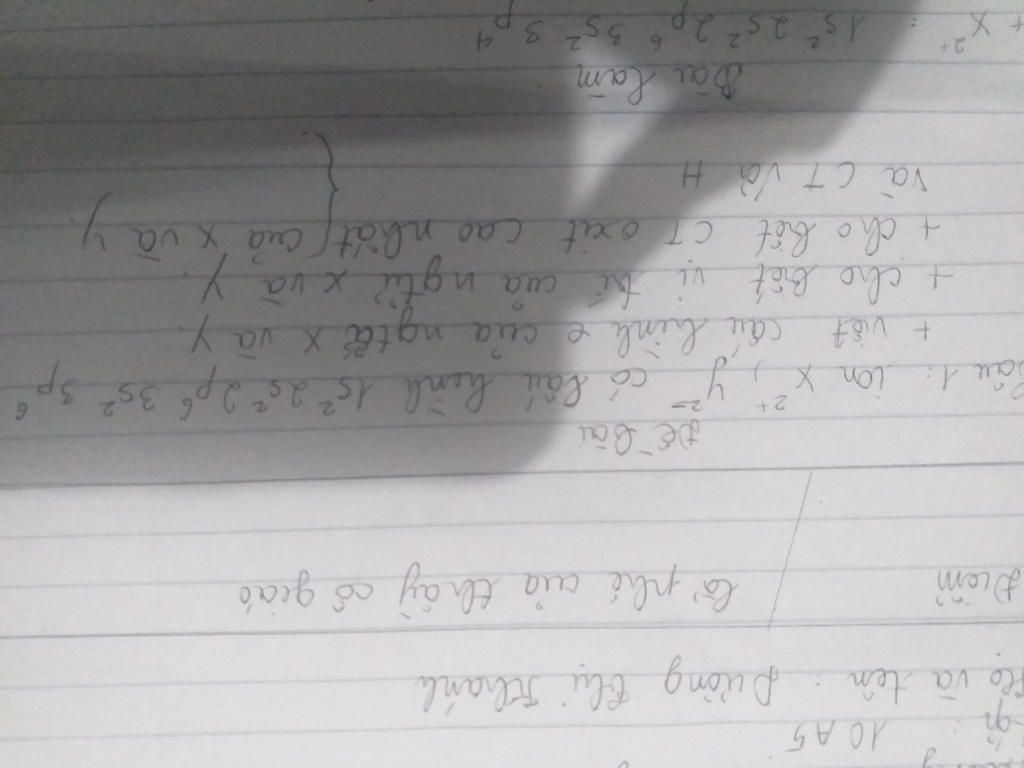 10 A5
Họ và tên : Dương Thị Khánh
Điểm
Lời phê của thầy cô giáo
Đề bài
Câu 1: ion X²⁺, Y²⁻ có cấu hình 1s² 2s² 2p⁶ 3s² 3p⁶
+ viết cấu hình e của ngtử X và Y.
+ cho biết vị trí của ngtử X và Y.
+ cho biết CT oxit cao nhất { của X và Y.
và CT với H
Bài làm
+ X²⁺ : 1s² 2s² 2p⁶ 3s² 3p⁴